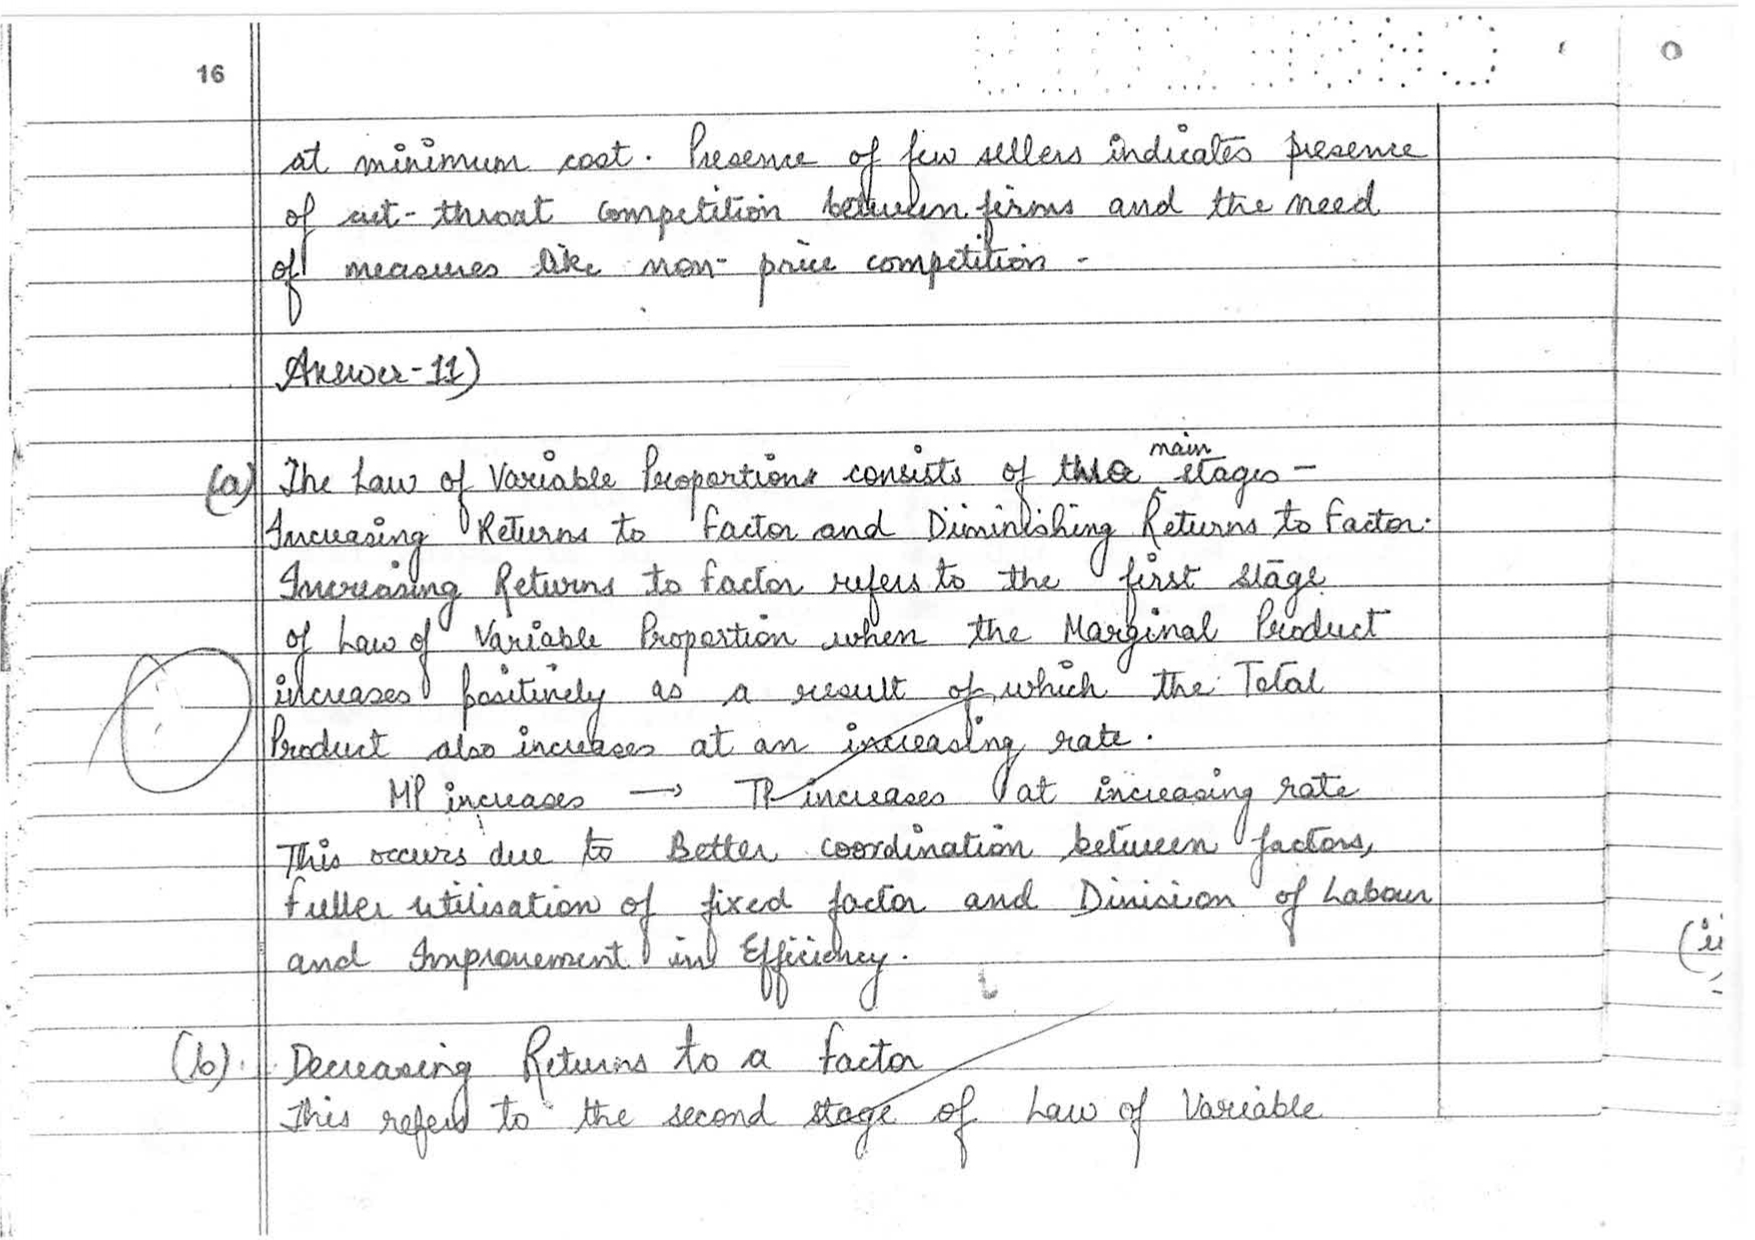 16
at minimum cost. Presence of few sellers indicates presence
of cut-throat competition between firms and the need
of measures like non-price competition -
Answer-11)
main
(a) The Law of Variable Proportions consists of stages -
Increasing Returns to Factor and Diminishing Returns to Factor.
Increasing Returns to Factor refers to the first stage
of Law of Variable Proportion when the Marginal Product
increases positively as a result of which the Total
Product also increases at an increasing rate.
MP increases → TP increases at increasing rate
This occurs due to Better coordination between factors,
Fuller utilisation of fixed factor and Division of Labour
and Improvement in Efficiency.
(b). Decreasing Returns to a Factor
This refers to the second stage of Law of Variable